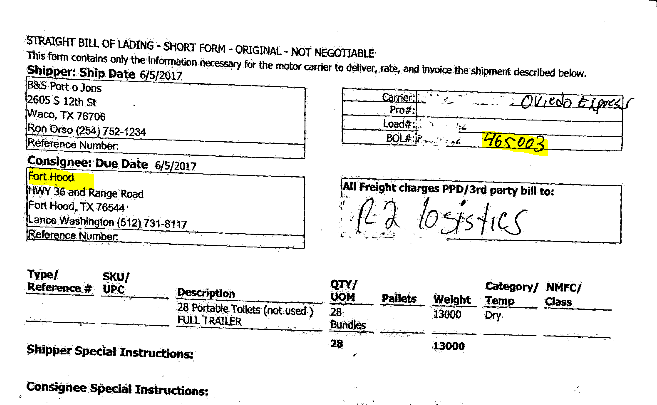 STRAIGHT BILL OF LADING - SHORT FORM - ORIGINAL - NOT NEGOTIABLE
This form contains only the information necessary for the motor carrier to deliver, rate, and invoice the shipment described below.
Shipper: Ship Date 6/5/2017
B&S Port o Jons
2605 S 12th St
Waco, TX 76706
Ron Orso (254) 752-1234
Reference Number:
Carrier: Oviedo Express
Pro#:
Load#:
BOL#: 465003
Consignee: Due Date 6/5/2017
Fort Hood
HWY 36 and Range Road
Fort Hood, TX 76544
Lance Washington (512) 731-8117
Reference Number:
All Freight charges PPD/3rd party bill to:
R2 logistics
Type/ Reference # SKU/ UPC Description QTY/ UOM Pallets Weight Category/ Temp NMFC/ Class
28 Portable Toilets (not used ) 28 13000 Dry
FULL TRAILER Bundles
28 13000
Shipper Special Instructions:
Consignee Special Instructions: